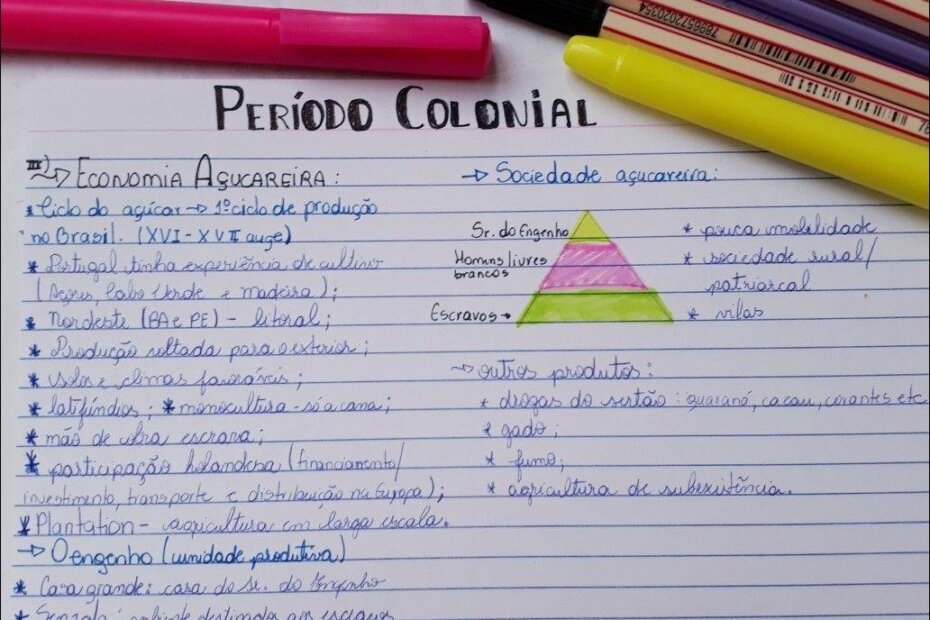 PERÍODO COLONIAL
III) → ECONOMIA AÇUCAREIRA:
* Ciclo do açúcar → 1º ciclo de produção
no Brasil. (XVI - XVII auge)
* Portugal tinha experiência de cultivo
(Açores, Cabo Verde e madeira);
* Nordeste (BA e PE) - litoral;
* Produção voltada para o exterior;
* solos e climas favoráveis;
* latifúndios; * monocultura - só a cana;
* mão de obra escrava;
* participação holandesa (financiamento/
investimento, transporte e distribuição na Europa);
* Plantation - agricultura em larga escala.
→ O engenho (unidade produtiva)
* Casa grande: casa do Sr. do Engenho
* Senzala: ambiente destinado aos escravos
→ Sociedade açucareira:
Sr. do Engenho
Homens livres
brancos
Escravos →
* pouca mobilidade
* sociedade rural/
patriarcal
* vilas
→ outros produtos:
* drogas do sertão: guaraná, cacau, corantes etc
* gado;
* fumo;
* agricultura de subexistência.
7896572020354